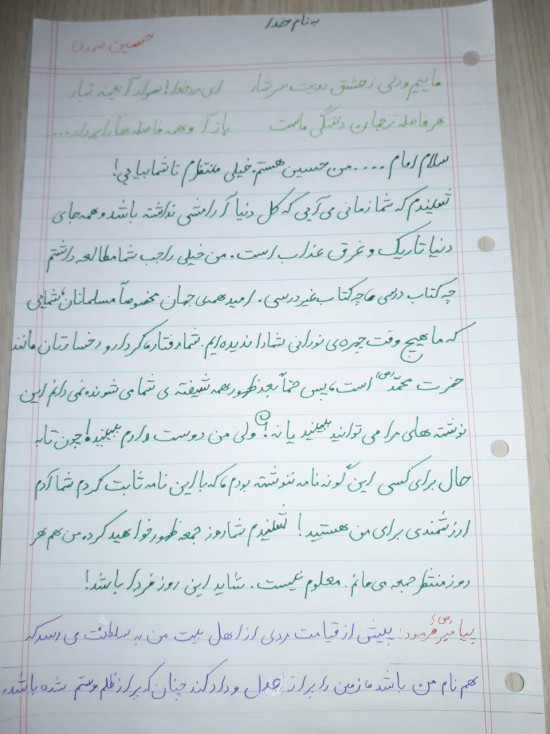 به نام خدا
حسین صمدی
ماییم و دلی ز عشق رویت سرشار ای مرد خدا! سوار آیینه تبار
هر فاصله ترجمان دلتنگی ماست بازآ و همه فاصله ها را بردار...
سلام امام .... من حسین هستم. خیلی منتظرم تا شما بیایی!
شنیدم که شما زمانی می آیی که کل دنیا آرامشی نداشته باشد و همه جای
دنیا تاریک و غرق عذاب است. من خیلی راجب شما مطالعه داشتم
چه کتاب درسی ها چه کتاب غیر درسی. امید همه ی جهان مخصوصاً مسلمانان شمایی
که ما هیچ وقت چهره ی نورانی شما را ندیده ایم. شما رفتار، کردار و رخسارتان مانند
حضرت محمّد (ص) است، پس حتماً بعد ظهور همه شیفته ی شما می شوند. نمی دانم این
نوشته های مرا می توانید ببینید یا نه؟! ولی من دوست دارم ببینید! چون تا به
حال برای کسی این گونه نامه ننوشته بودم که با این نامه ثابت کردم شما آدم
ارزشمندی برای من هستید! شنیدم شما روز جمعه ظهور خواهید کرد. من هم هر
روز منتظر جمعه می مانم. معلوم نیست. شاید این روز فردا باشد!
پیامبر (ص) فرمود: پیش از قیامت مردی از اهل بیت من به سلطنت می رسد که
هم نام من باشد، زمین را پر از عدل و داد کند چنان که پر از ظلم و ستم شده باشد.